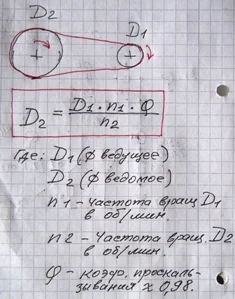 D2
D1
D2 = D1 · n1 · φ / n2
где: D1 (φ ведущее)
D2 (φ ведомое)
n1 - частота вращ. D1
в об/мин.
n2 - Частота вращ. D2
в об/мин.
φ - коэф. проскаль-
зывания ≈ 0,98.